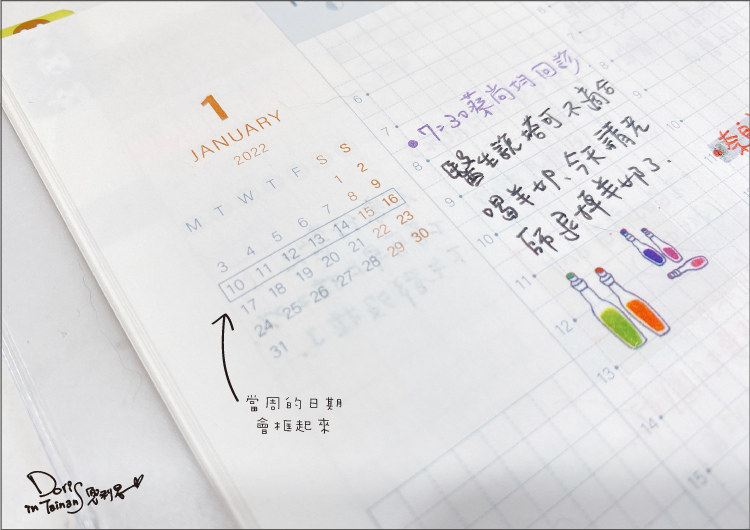 1
JANUARY
2022
M T W T F S S
1 2
3 4 5 6 7 8 9
10 11 12 13 14 15 16
17 18 19 20 21 22 23
24 25 26 27 28 29 30
31
當周的日期
會框起來
Doris
in Tainan
6
7
8
9
10
11
12
13
14
15
7:30 蔡尚均回診
醫生說塔可不適合
喝羊奶、今天請老
師退掉羊奶了.
8
9
10
11